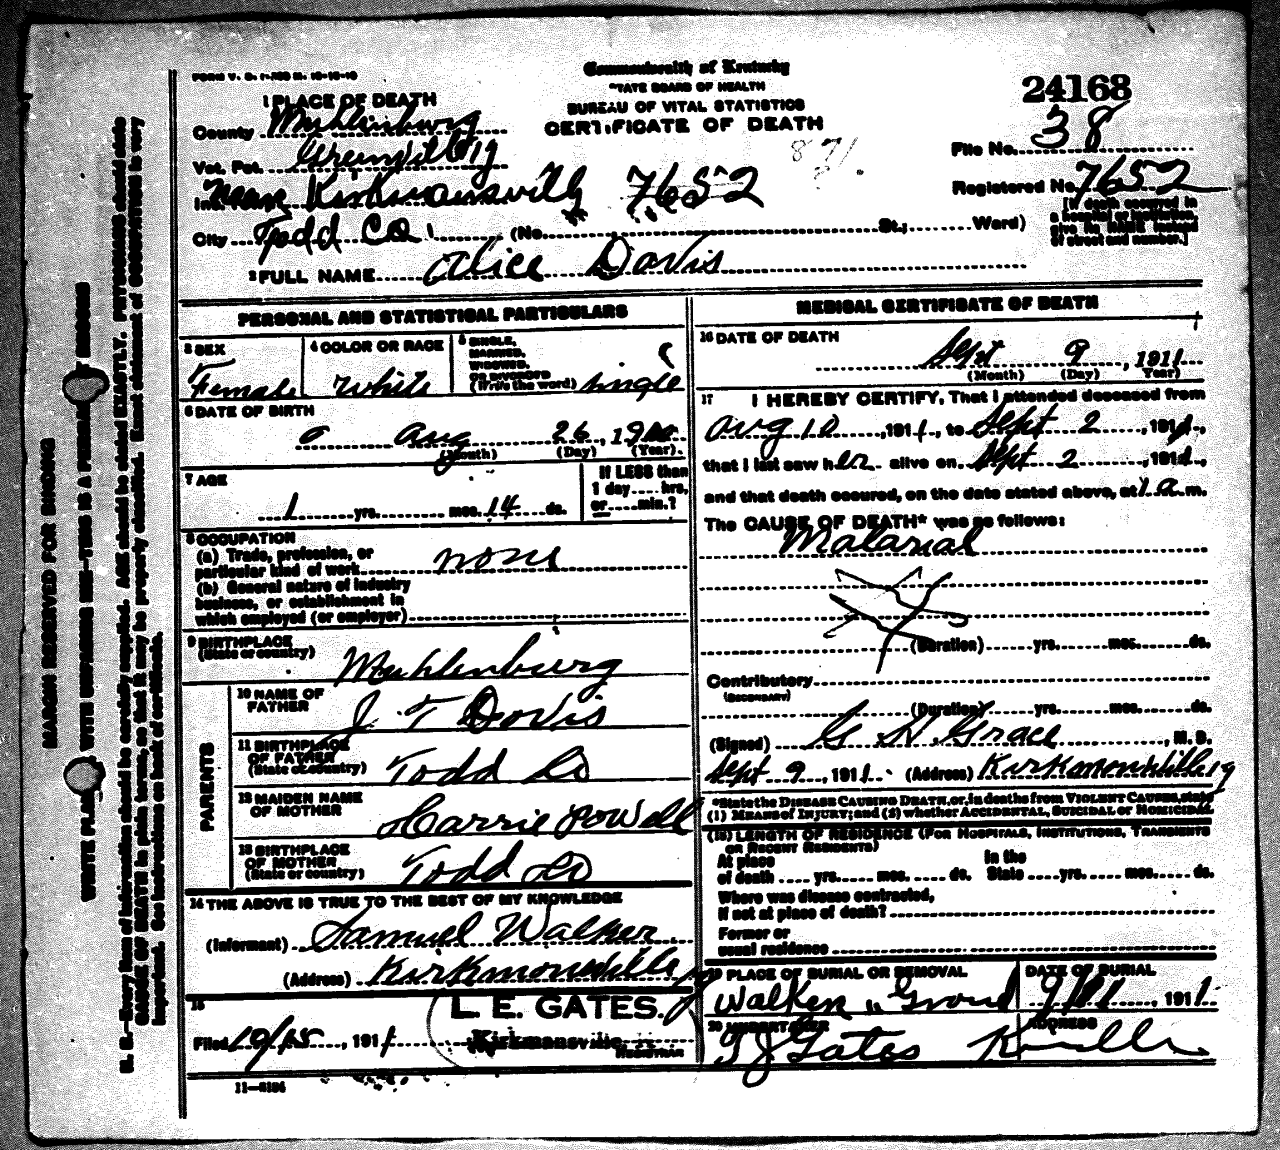 FORM V. S. 1-
Commonwealth of Kentucky
STATE BOARD OF HEALTH
BUREAU OF VITAL STATISTICS
CERTIFICATE OF DEATH
24168
1 PLACE OF DEATH
County Muhlinburg
Vot. Pct. Greenville
Near Kirkmansvilly 7652
City Todd Co (No. St.; Ward)
File No. 38
Registered No. 7652
[If death occurred in
a hospital or institution,
give its NAME instead
of street and number.]
2 FULL NAME Alice Davis
PERSONAL AND STATISTICAL PARTICULARS
3 SEX
Female
4 COLOR OR RACE
White
5 SINGLE,
MARRIED,
WIDOWED,
OR DIVORCED
(Write the word) single
6 DATE OF BIRTH
Aug 26, 19
(Month) (Day) (Year)
7 AGE
1 yrs. mos. 14 ds.
If LESS than
1 day hrs.
or min.?
8 OCCUPATION
(a) Trade, profession, or
particular kind of work none
(b) General nature of industry
business, or establishment in
which employed (or employer)
9 BIRTHPLACE
(State or country)
Muhlenburg
PARENTS
10 NAME OF
FATHER
J T Davis
11 BIRTHPLACE
OF FATHER
(State or country)
Todd Co
12 MAIDEN NAME
OF MOTHER
Carrie Powell
13 BIRTHPLACE
OF MOTHER
(State or country)
Todd Co
14 THE ABOVE IS TRUE TO THE BEST OF MY KNOWLEDGE
(Informant) Samuel Walker
(Address) Kirkmansville Ky
15
Filed 10/15, 1911
L. E. GATES.
Kirkmansville
REGISTRAR
11-
MEDICAL CERTIFICATE OF DEATH
16 DATE OF DEATH
Sept 9, 1911
(Month) (Day) Year)
17 I HEREBY CERTIFY, That I attended deceased from
Aug 10, 1911, to Sept 2, 1911,
that I last saw her alive on Sept 2, 1911,
and that death occured, on the date stated above, at 1 a m.
The CAUSE OF DEATH* was as follows:
Malarial
(Duration) yrs. mos. ds.
Contributory
(SECONDARY)
(Duration) yrs. mos. ds.
(Signed) G H Grace, M. D.
Sept 9, 1911 (Address) Kirkmansville Ky
*State the DISEASE CAUSING DEATH, or, in deaths from VIOLENT CAUSES, state
(1) MEANS of INJURY; and (2) whether ACCIDENTAL, SUICIDAL or HOMICIDAL
(18) LENGTH OF RESIDENCE (FOR HOSPITALS, INSTITUTIONS, TRANSIENTS
OR RECENT RESIDENTS)
At place In the
of death yrs. mos. ds. State yrs. mos. ds.
Where was disease contracted,
If not at place of death?
Former or
usual residence
19 PLACE OF BURIAL OR REMOVAL
Walker Ground
DATE OF BURIAL
9/ , 1911
20 UNDERTAKER
T J Gates
ADDRESS
MARGIN RESERVED FOR BINDING
WRITE PLAINLY, WITH UNFADING INK—THIS IS A PERMANENT RECORD
N. B.—Every item of information should be carefully supplied. AGE should be stated EXACTLY. PHYSICIANS should state
CAUSE OF DEATH in plain terms, so that it may be properly classified. Exact statement of OCCUPATION is very
important. See instructions on back of certificate.